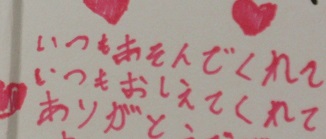 いつもあそんでくれて
いつもおしえてくれて
ありがと、